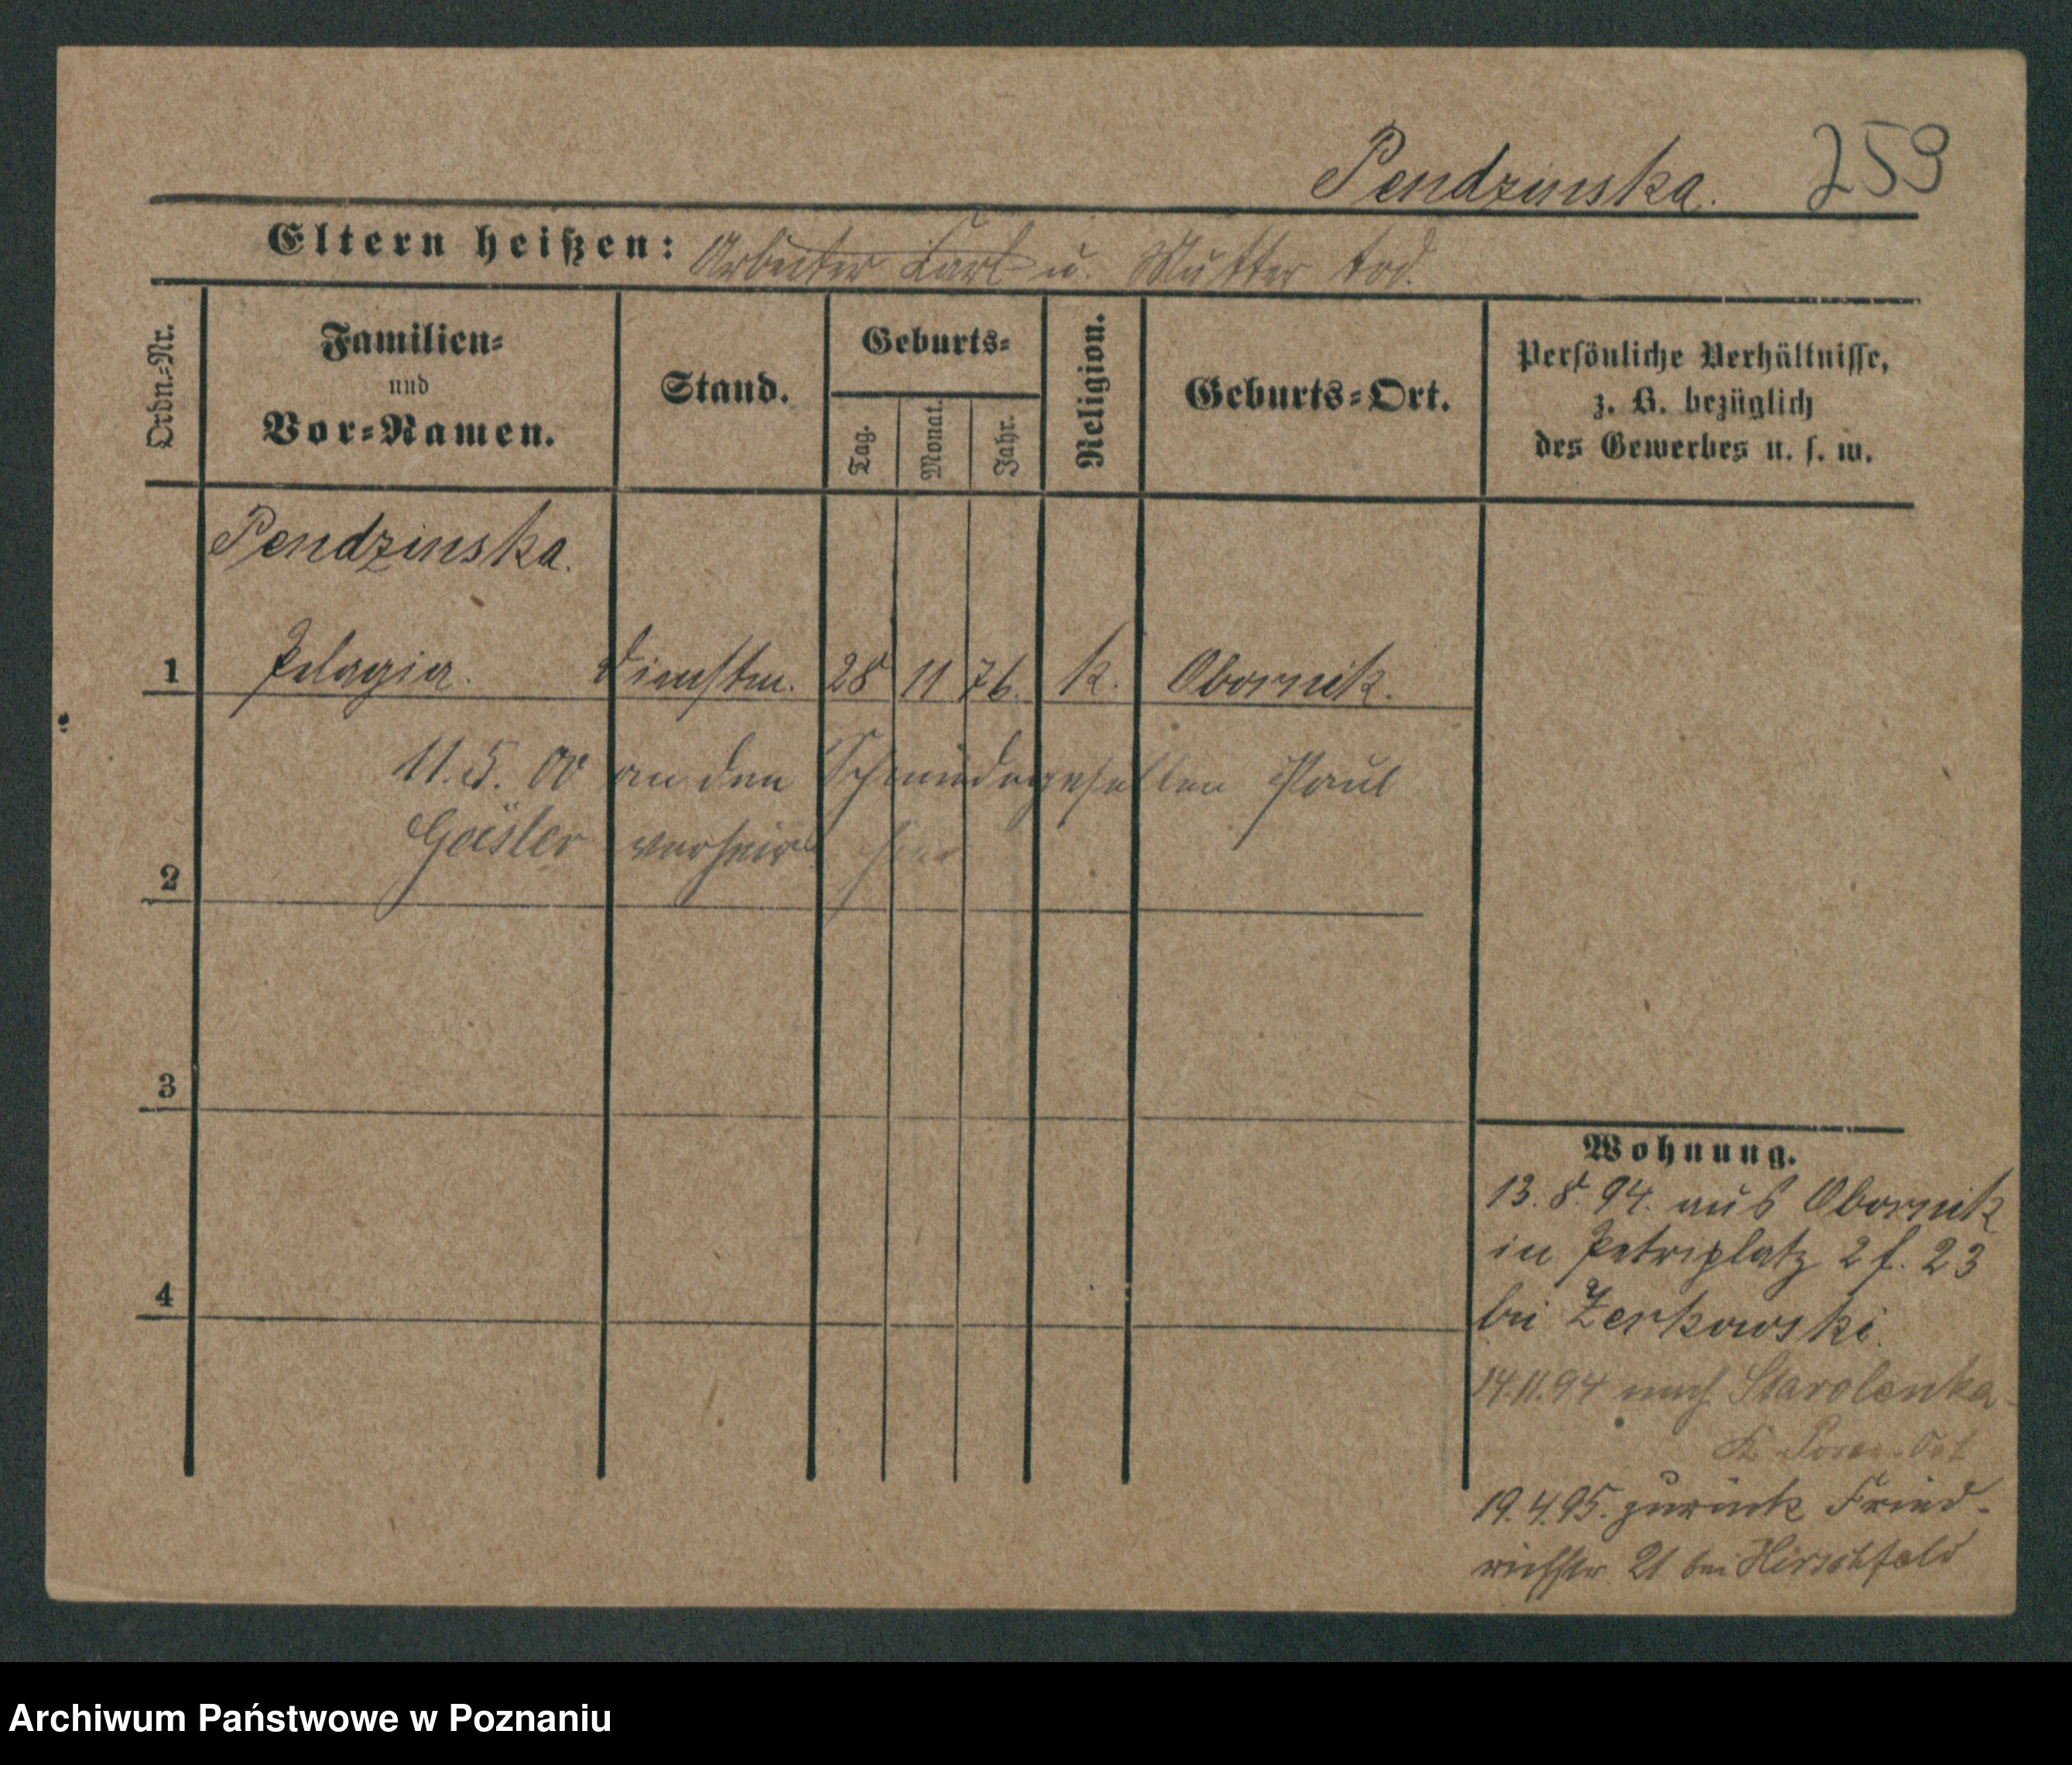 Pendzinska. 259
Eltern heißen: Arbeiter Karl u. Mutter tod.
Ordn.-Nr.
Familien-
und
Vor-Namen.
Stand.
Geburts-
Tag.
Monat.
Jahr.
Religion.
Geburts-Ort.
Persönliche Verhältnisse,
z. B. bezüglich
des Gewerbes u. s. w.
Pendzinska.
1 Pelagia. Dienstm. 28 11 76. k. Obornik.
11.5.00 an den Schmiedegesellen Paul
Gäsler verheir. hier
2
3
4
Wohnung.
13.8.94. aus Obornik
in Petriplatz 2 f. 23
bei Zerkowski.
14.11.94 nach Starolenka
K. Posen-Ost
19.4.95. zurück Fried-
richstr. 21 bei Hirschfeld
Archiwum Państwowe w Poznaniu